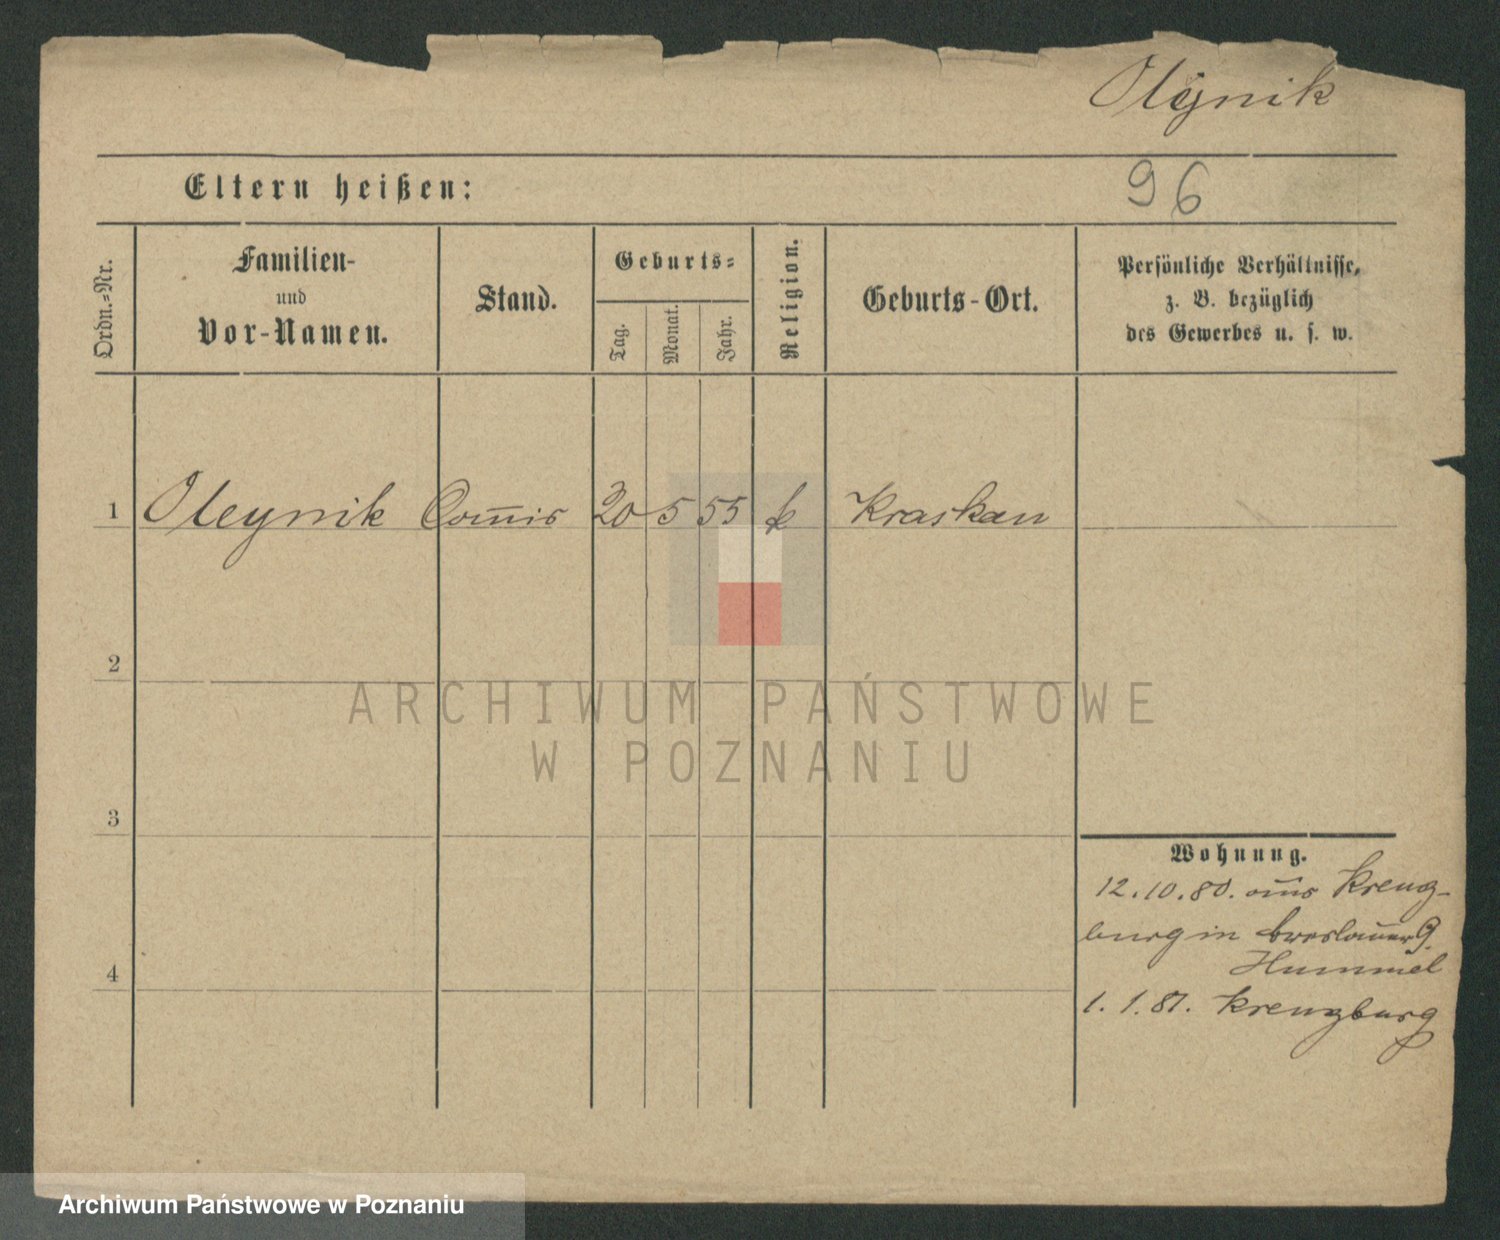 Olejnik
96
Eltern heißen:
Ordn.-Nr.
Familien-
und
Vor-Namen.
Stand.
Geburts-
Tag.
Monat.
Jahr.
Religion.
Geburts-Ort.
Persönliche Verhältnisse,
z. B. bezüglich
des Gewerbes u. s. w.
1 Oleynik Com̅is 20 5 55 k Kraskau
2
3
4
Wohnung.
12.10.80. aus Kreuz-
burg in Breslauer G.
Hummel
1.1.81. Kreuzburg
ARCHIWUM PAŃSTWOWE
W POZNANIU
Archiwum Państwowe w Poznaniu